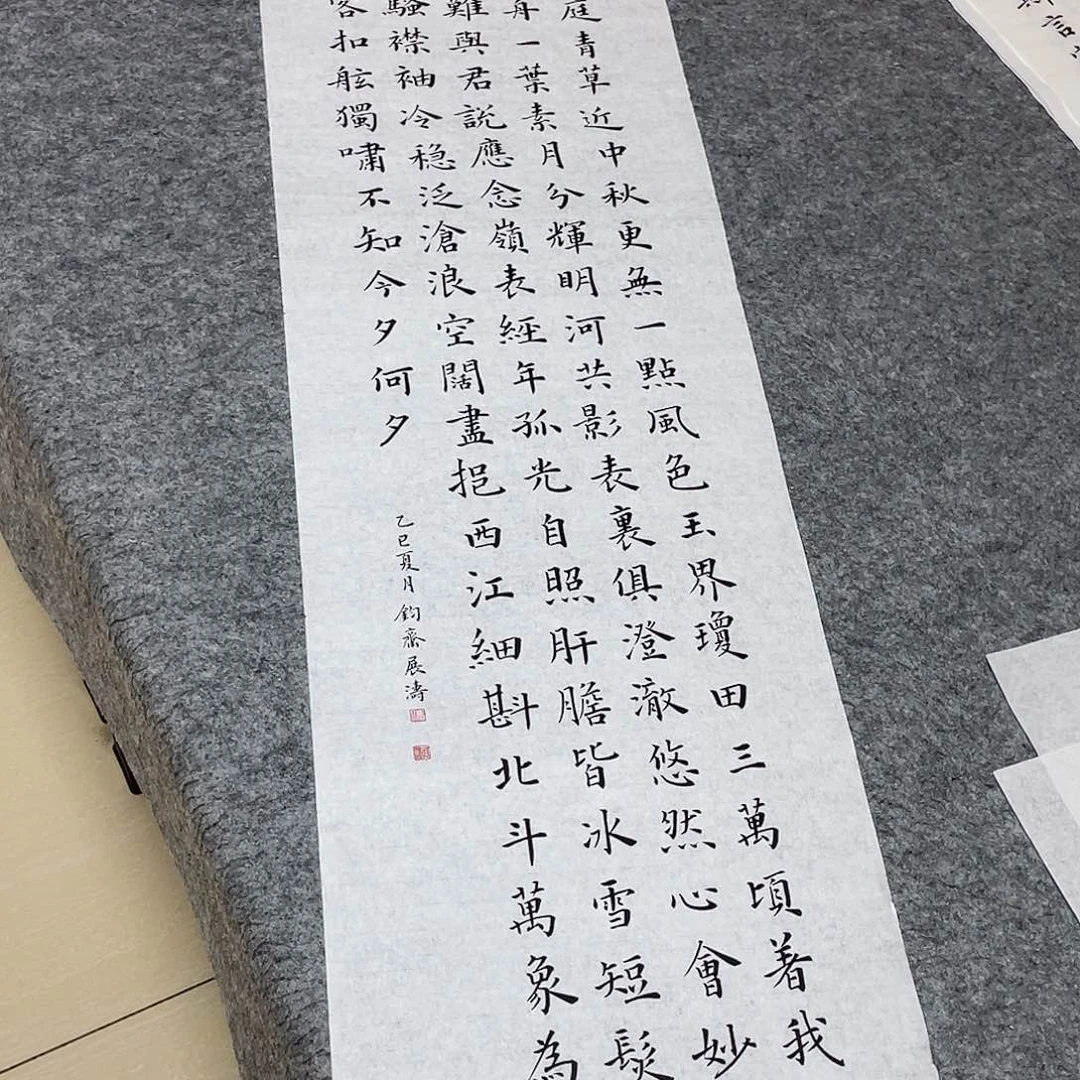 庭青草近中秋更無一點風色玉界瓊田三萬頃着我
舟一葉素月分輝明河共影表裏俱澄澈悠然心會妙
難與君說應念嶺表經年孤光自照肝膽皆冰雪短髮
騷襟袖冷稳泛滄浪空闊盡挹西江細斟北斗萬象為
客扣舷獨嘯不知今夕何夕
乙巳夏月鈞齋展濤
言